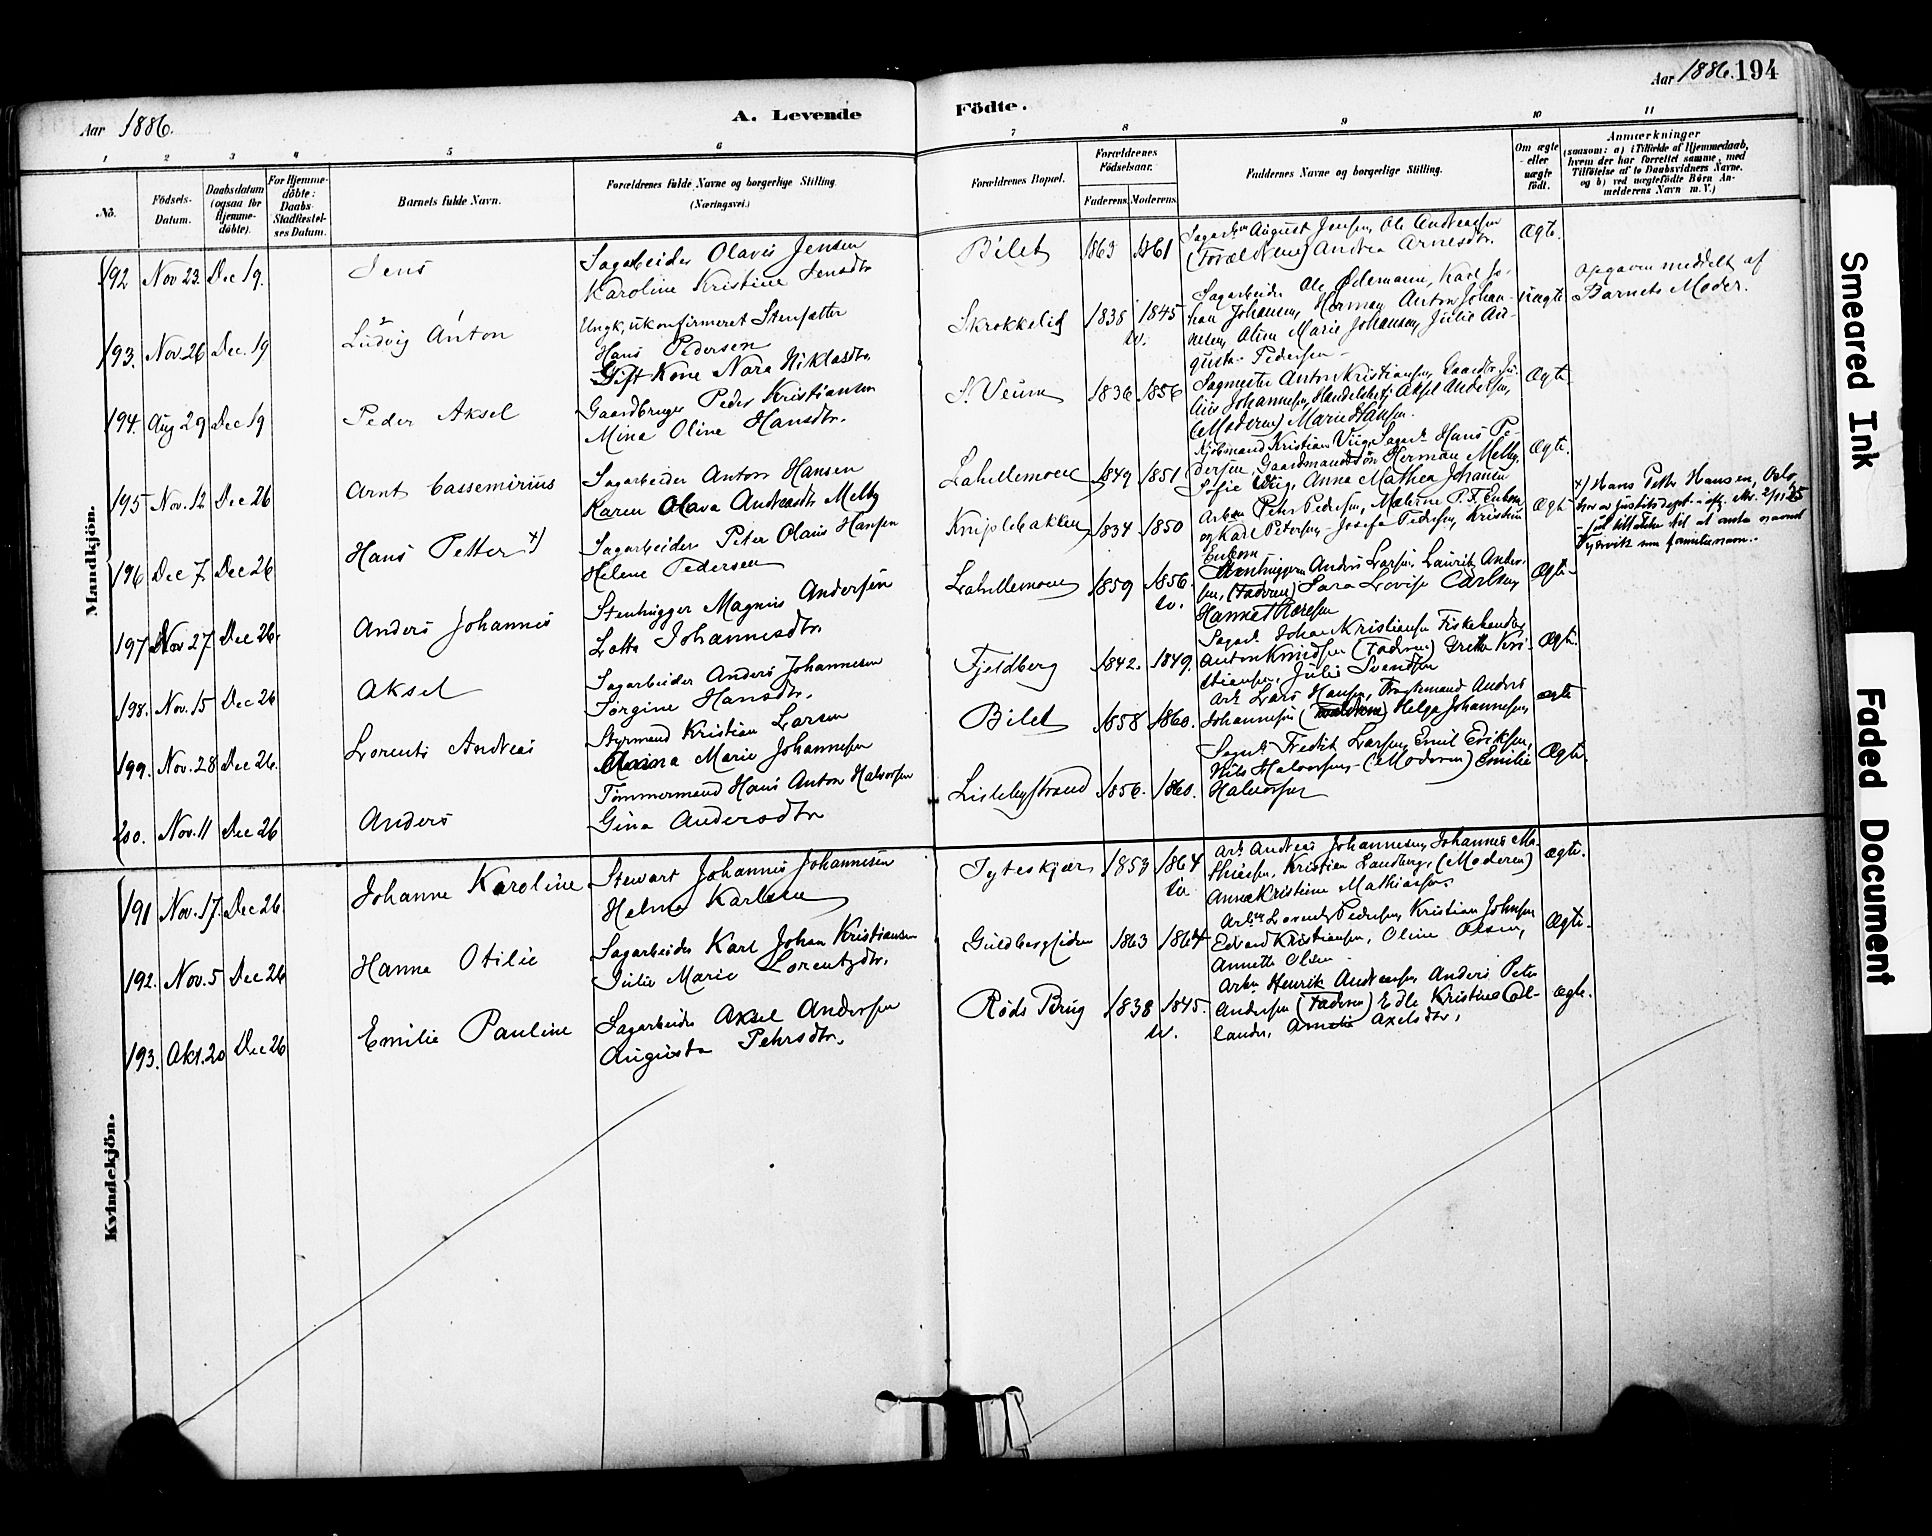 Aar 1886.
A. Levende
Födte.
Aar 1886. 194
1 2 3 4 5 6 7 8 9 10 11
No.
Födsels-Datum.
Daabsdatum (ogsaa for Hjemme-döbte).
For Hjemme-döbte: Daabs-Stadfæstel-ses Datum.
Barnets fulde Navn.
Forældrenes fulde Navne og borgerlige Stilling. (Næringsvei.)
Forældrenes Bopæl.
Forældrenes Födselsaar.
Faderens. Moderens.
Faddernes Navne og borgerlige Stilling.
Om ægte eller uægte födt.
Anmærkninger
(saasom: a) i Tilfælde af Hjemmedaab,
hvem der har forrettet samme, med
Tilföielse af to Daabsvidners Navne,
og b) ved uægtefödte Börn An-
melderens Navn m. V.)
Mandkjön.
192 Nov 23. Dec 19. Jens
Sagarbeider Olavis Jensen
Karoline Kristine Jensdtr
Bilet 1863 1861
August Jensen, Ole Andreassen
Andrea Arnesdtr. Ægte.
193. Nov. 26 Dec. 19 Ludvig Anton
Ungk, ukonfirmeret Stenfatter
Hans Pedersen
Gift Kone Nora Niklasdtr.
Skrokkelid 1838 1845 ev.
Sagarbeider Ole Ødemann, Karl Jo-
han Johansen, Herman Anton Johan-
nesen, Oline Marie Johansen, Julie Au-
gusta Pedersen
Uægte
Opgaven meddelt af
Barnets Moder.
194. Aug 29 Dec 19 Peder Aksel
Gaardbruger Peder Kristiansen
Mina Oline Hansdtr.
S. Veum 1836 1856
Sagmester Anton Kristiansen,
Johannesen, Aksel Andersen,
(Moderen) Marie Hansen.
Ægte.
195 Nov. 12 Dec 26 Arnt Cassemirius
Sagarbeider Anton Hansen
Karen Olava Andreadtr Melby
Lahellemoen 1849 1851
Kjöbmand Kristian Viig, Hans Pe-
dersen, Gaardmandssön Herman Melby,
Sofie Viig, Anna Mathea Johansen
Ægte.
196 Dec 7. Dec 26 Hans Petter x)
Sagarbeider Peter Olaus Hansen
Helene Pedersen
Kniplebakken 1834 1850
Peter Pedersen,
og Karl Petersen, Josefa Pedersen, Kristine
Ægte
x) Hans Petter Hansen, Oslo,
197 Nov 27 Dec 26. Anders Johannes
Stenhugger Magnus Andersen
Lotta Johannesdtr
Lahellemoen 1859 1856. ev.
Anders Larsen, Laurits Ander-
sen, (Faderen) Sara Lovise Carlsen,
Hanna Thoresen
Ægte.
198. Nov. 15 Dec 26 Aksel
Sagarbeider Anders Johannesen
Jörgine Hansdtr.
Fjeldberg 1842. 1849.
Johan Kristiansen
Anton Knudsen (Faderen) Grethe Kri-
stiansen, Julie Svendsen
Ægte.
199. Nov. 28 Dec 26. Lorents Andreas
Styrmand Kristian Larsen
Anna Marie Johannesen
Bilet 1858 1860.
Arb. Lars Hansen, Anders
Johannesen Helga Johannesen,
ægte
200. Nov. 11 Dec 26 Anders
Tömmermand Hans Anton Halvorsen
Gina Andersdtr
Lislebystrand 1856. 1860.
Fredrik Larsen, Emil Eriksen,
Nils Halvorsen, (Moderen) Emilie
Halvorsen
Ægte.
Kvindekjön.
191 Nov. 17. Dec 26 Johanne Karoline
Stewart Johannes Johannesen
Helma Karlsen
Tyteskjær 1853 1864 ev.
Arb. Andreas Johannesen, Johannes Ma-
thiesen, Kristian Landberg, (Moderen)
Anna Kristine Mathiasen.
Ægte.
192. Nov. 5 Dec 26 Hanna Otilie
Sagarbeider Karl Johan Kristiansen
Julie Marie Lorentzdtr.
Guldbergsiden 1863 1864
Lorentz Pedersen, Kristian Johnsen
Edvard Kristiansen, Oline Olsen,
Annette Olsen
Ægte.
193. Okt. 20 Dec 26 Emilie Pauline
Sagarbeider Aksel Andersen
Augusta Pehrsdtr.
Röds Brug 1838 1845. ev.
Henrik Andreasen, Anders Peter
Andersen (Faderen) Edle Kristine
Amelie Axelsdtr.
ægte.
Smeared Ink
Faded Document